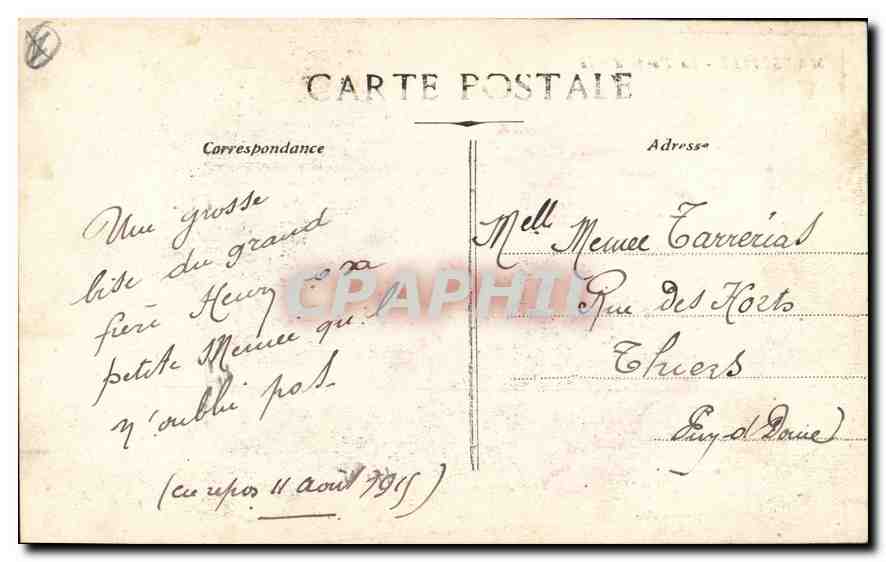 CARTE POSTALE
Correspondance
Une grosse
bise du grand
frère Henry a sa
petite Memée qu'il
n'oublie pas
(en repos 11 Août 1915)
Adresse
Melle Memee Tarrérias
Rue des Horts
Thiers
Puy-d Dome)
CPAPHIL